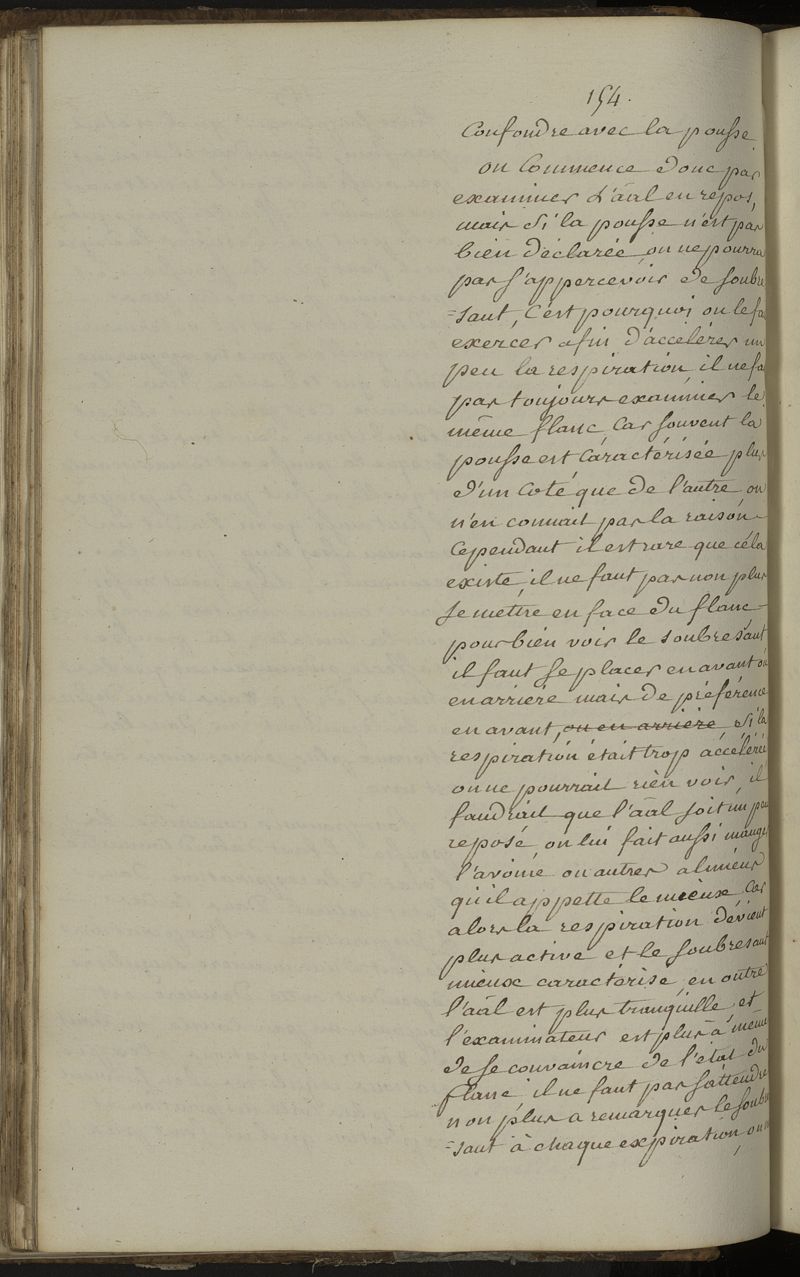 154.
Confondre avec la pousse
on Commence donc par
examiner L'aâl en repos,
mais Si la pousse n'est pas
bien déclarée on ne pourra
pas s'appercevoir de soubre
=saut, C'est pourquoi on le
exercer afin d'accelérer un
peu la respiration, il ne
pas toujours examiner le
même flanc, Car souvent la
pousse est Caractérisée plus
d'un Coté que de l'autre on
n'en connait pas la raison-
Cependant il est rare que céla
existe, il ne faut pas non plus
se mettre en face du flanc-
pour bien voir le soubresaut
il faut se placer en avant ou
en arriere mais de préférence
en avant, ou en arriére Si la
respiration était trop accélérée
on ne pourrait rien voir, il
faudrait que l'aâl soit un peu
reposé, on lui fait aussi manger
l'avoine ou autres alimens
qu'il appette le mieux, Car
alors la respiration dévient
plus active et le soubresaut
mieux caractérisé, en outre
l'aâl est plus tranquille, et
l'examinateur est plus à même
de se convaincre de l'etat du
flanc, il ne faut pas s'attendre
non plus a remarquer le soubre
=saut à chaque expiration, on